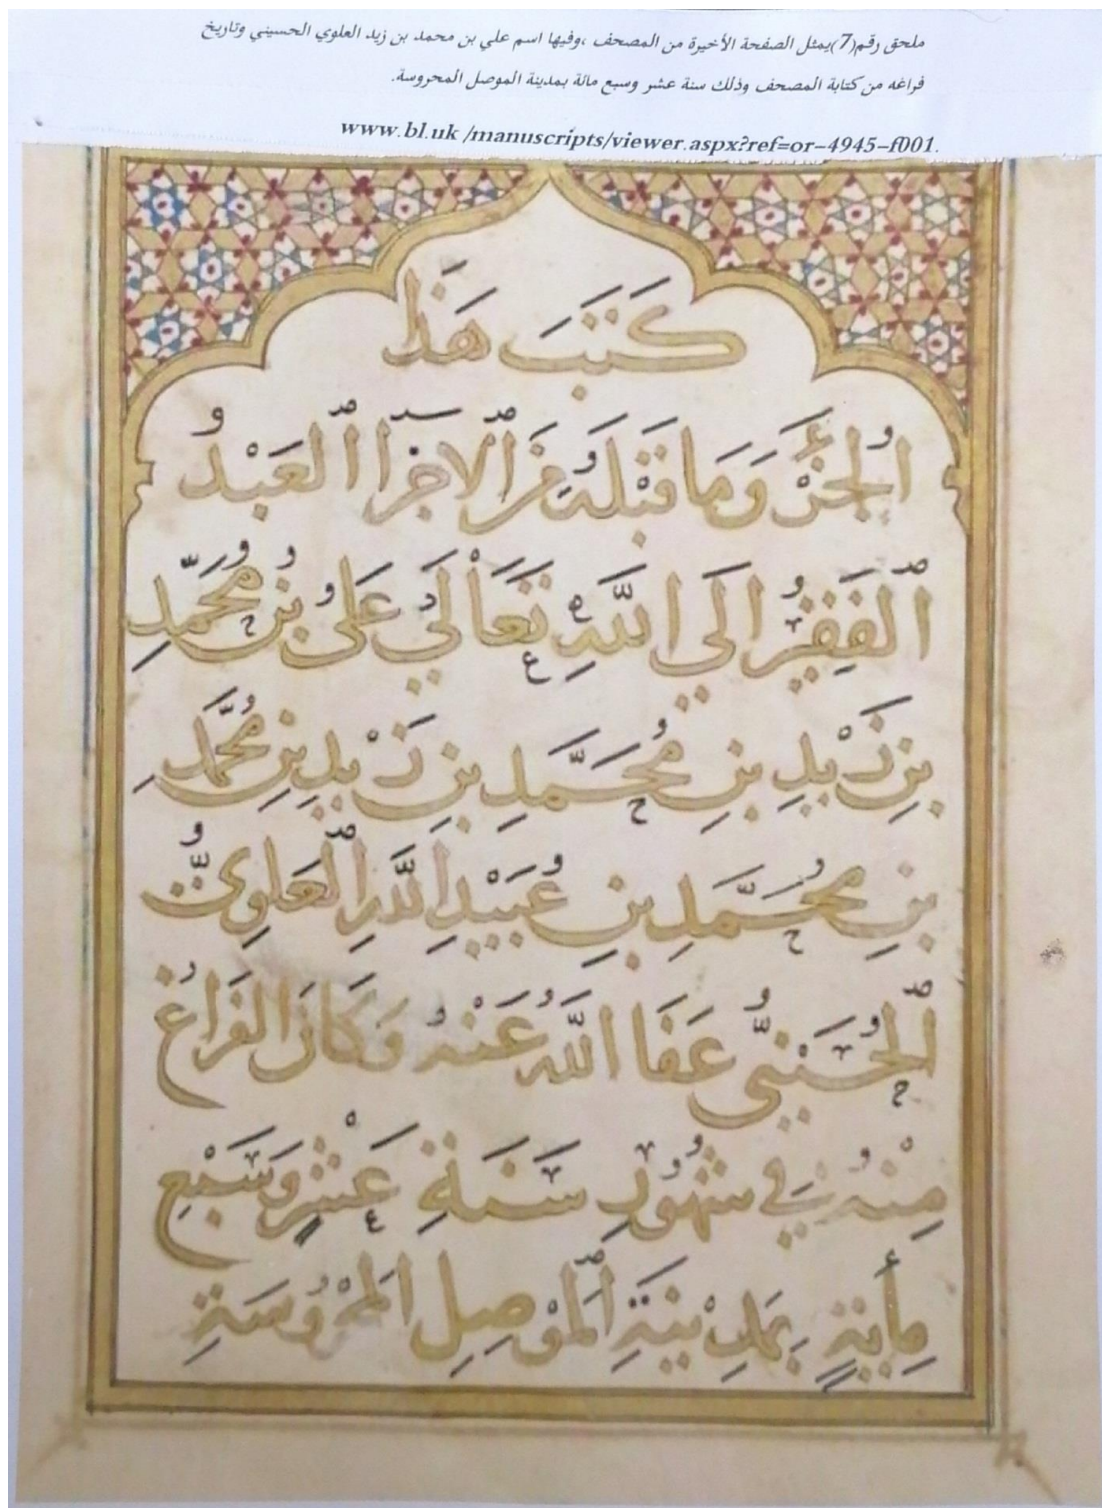 ملحق رقم(7)يمثل الصفحة الأخيرة من المصحف ،وفيها اسم علي بن محمد بن زيد العلوي الحسيني وتاريخ
فراغه من كتابة المصحف وذلك سنة عشر وسبع مائة بمدينة الموصل المحروسة.
www.bl.uk /manuscripts/viewer.aspx?ref=or-4945-f001.
كَتَبَ هَذا
الجُزْءَ وَمَا قَبْلَهُ مِنَ الاجْزَآءِ العَبْدُ
الفَقِيرُ الَى اللَّهِ تَعَالَى عَلىُّ بْنُ مُحَمَّدِ
بنِ زَيْدِ بنِ مُحَمَّدِ بنِ زَيْدِ بنِ مُحَمَّدِ
بنِ مُحَمَّدِ بنِ عُبَيْدِ اللَّهِ العَلَوِىُّ
الحُسَيْنِىُّ عَفَا اللَّهُ عَنْهُ وَكَانَ الفَرَاغُ
مِنْهُ فِي شُهُورِ سَنَةِ عَشْرٍ وَسَبْعِ
مِأيَةٍ بِمَدِيْنَةِ المَوْصِلِ المَحْرُوسَةِ